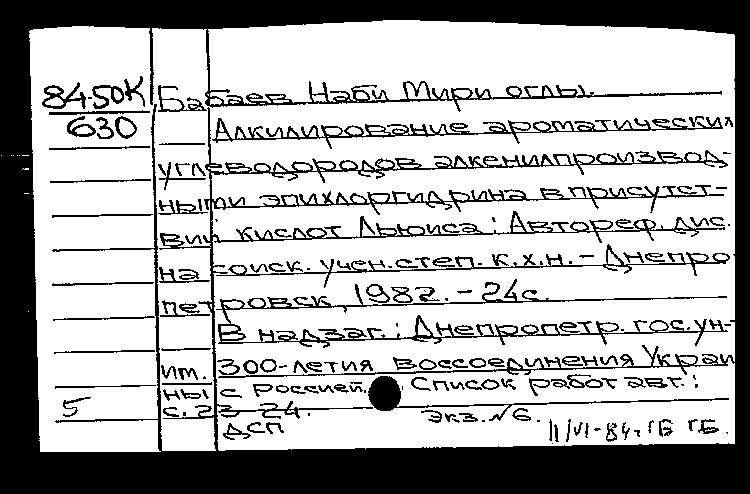 84-50К Бабаев Наби Мири оглы.
630 Алкилирование ароматических
углеводородов алкенилпроизвод-
ными эпихлоргидрина в присутст-
вии кислот Льюиса: Автореф. дис.
на соиск. учен. степ. к.х.н. - Днепро
петровск, 1982. - 24с.
В надзаг.: Днепропетр. гос. ун-
им. 300-летия воссоединения Украи
ны с Россией. Список работ авт.:
5 с. 23-24.
ДСП экз. №6. 11/VI-84г. ГБ